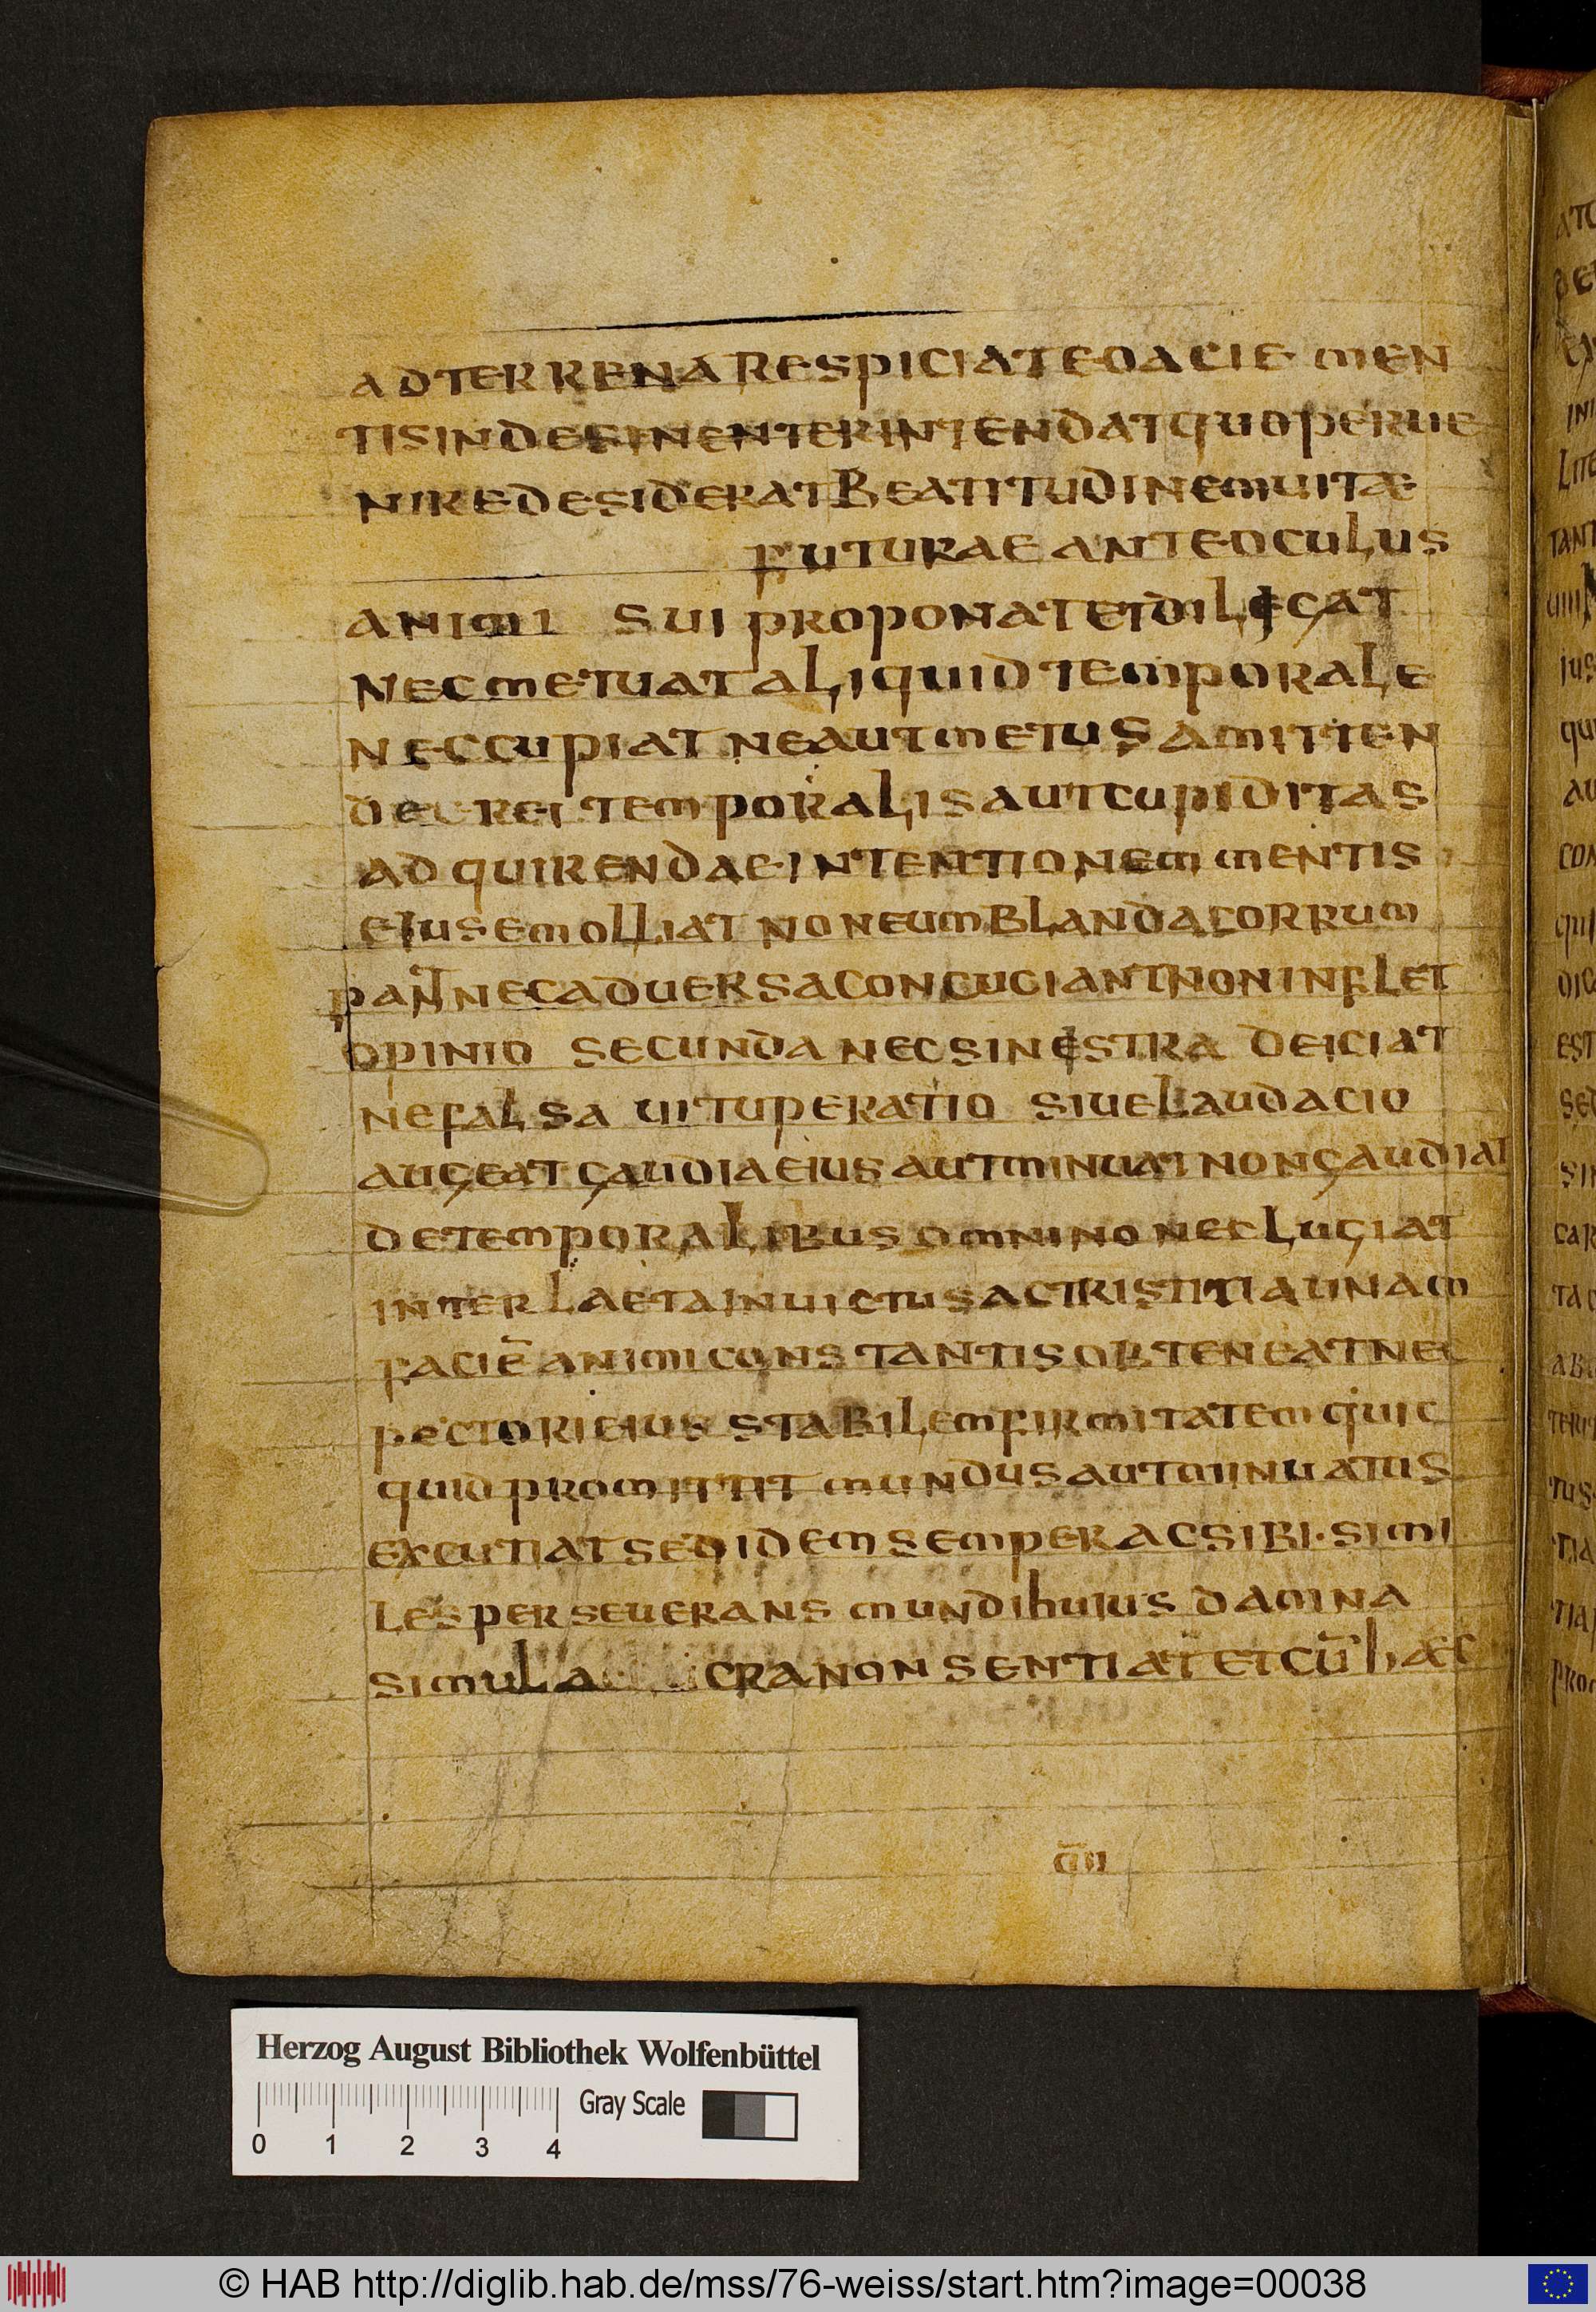 ADTERRENARESPICIATEOACIE MEN
TISINDESINENTERINTENDATQUOPERUE
NIREDESIDERATBEATITUDINEMUITÆ
FUTURAE ANTEOCULUS
ANIMI SUI PROPONATETDILIGAT
NECMETUATALIQUIDTEMPORALE
NECCUPIAT NEAUTMETUSAMITTEN
DECREI TEMPORALISAUTCUPIDITAS
ADQUIRENDAEINTENTIONEMMENTIS
EIUSEMOLLIAT NONEUMBLANDACORRUM
PANTNECADUERSACONCUCIANTNONINFLET
OPINIO SECUNDA NECSINISTRA DEICIAT
NEFALSA UITUPERATIO SIUELAUDACIO
AUGEATGAUDIAEIUSAUTMINUATNONGAUDIAT
DETEMPORALIBUSOMNINONECLUGIAT
INTERLAETAINUICTUSACTRISTITIAUNAM
FACIĒANIMICONSTANTISOBTENEATNEC
PECTORIEIUS STABILEMFIRMITATEMQUIC
QUIDPROMITTIT MUNDUSAUTMINUATUS
EXCUTIATSEDIDEMSEMPERACSIBI·SIMI
LESPERSEUERANS MUNDIHUIUS DAMNA
SIMULA CRANONSENTIATETCŪHÆC
Herzog August Bibliothek Wolfenbüttel
Gray Scale
0 1 2 3 4
© HAB http://diglib.hab.de/mss/76-weiss/start.htm?image=00038